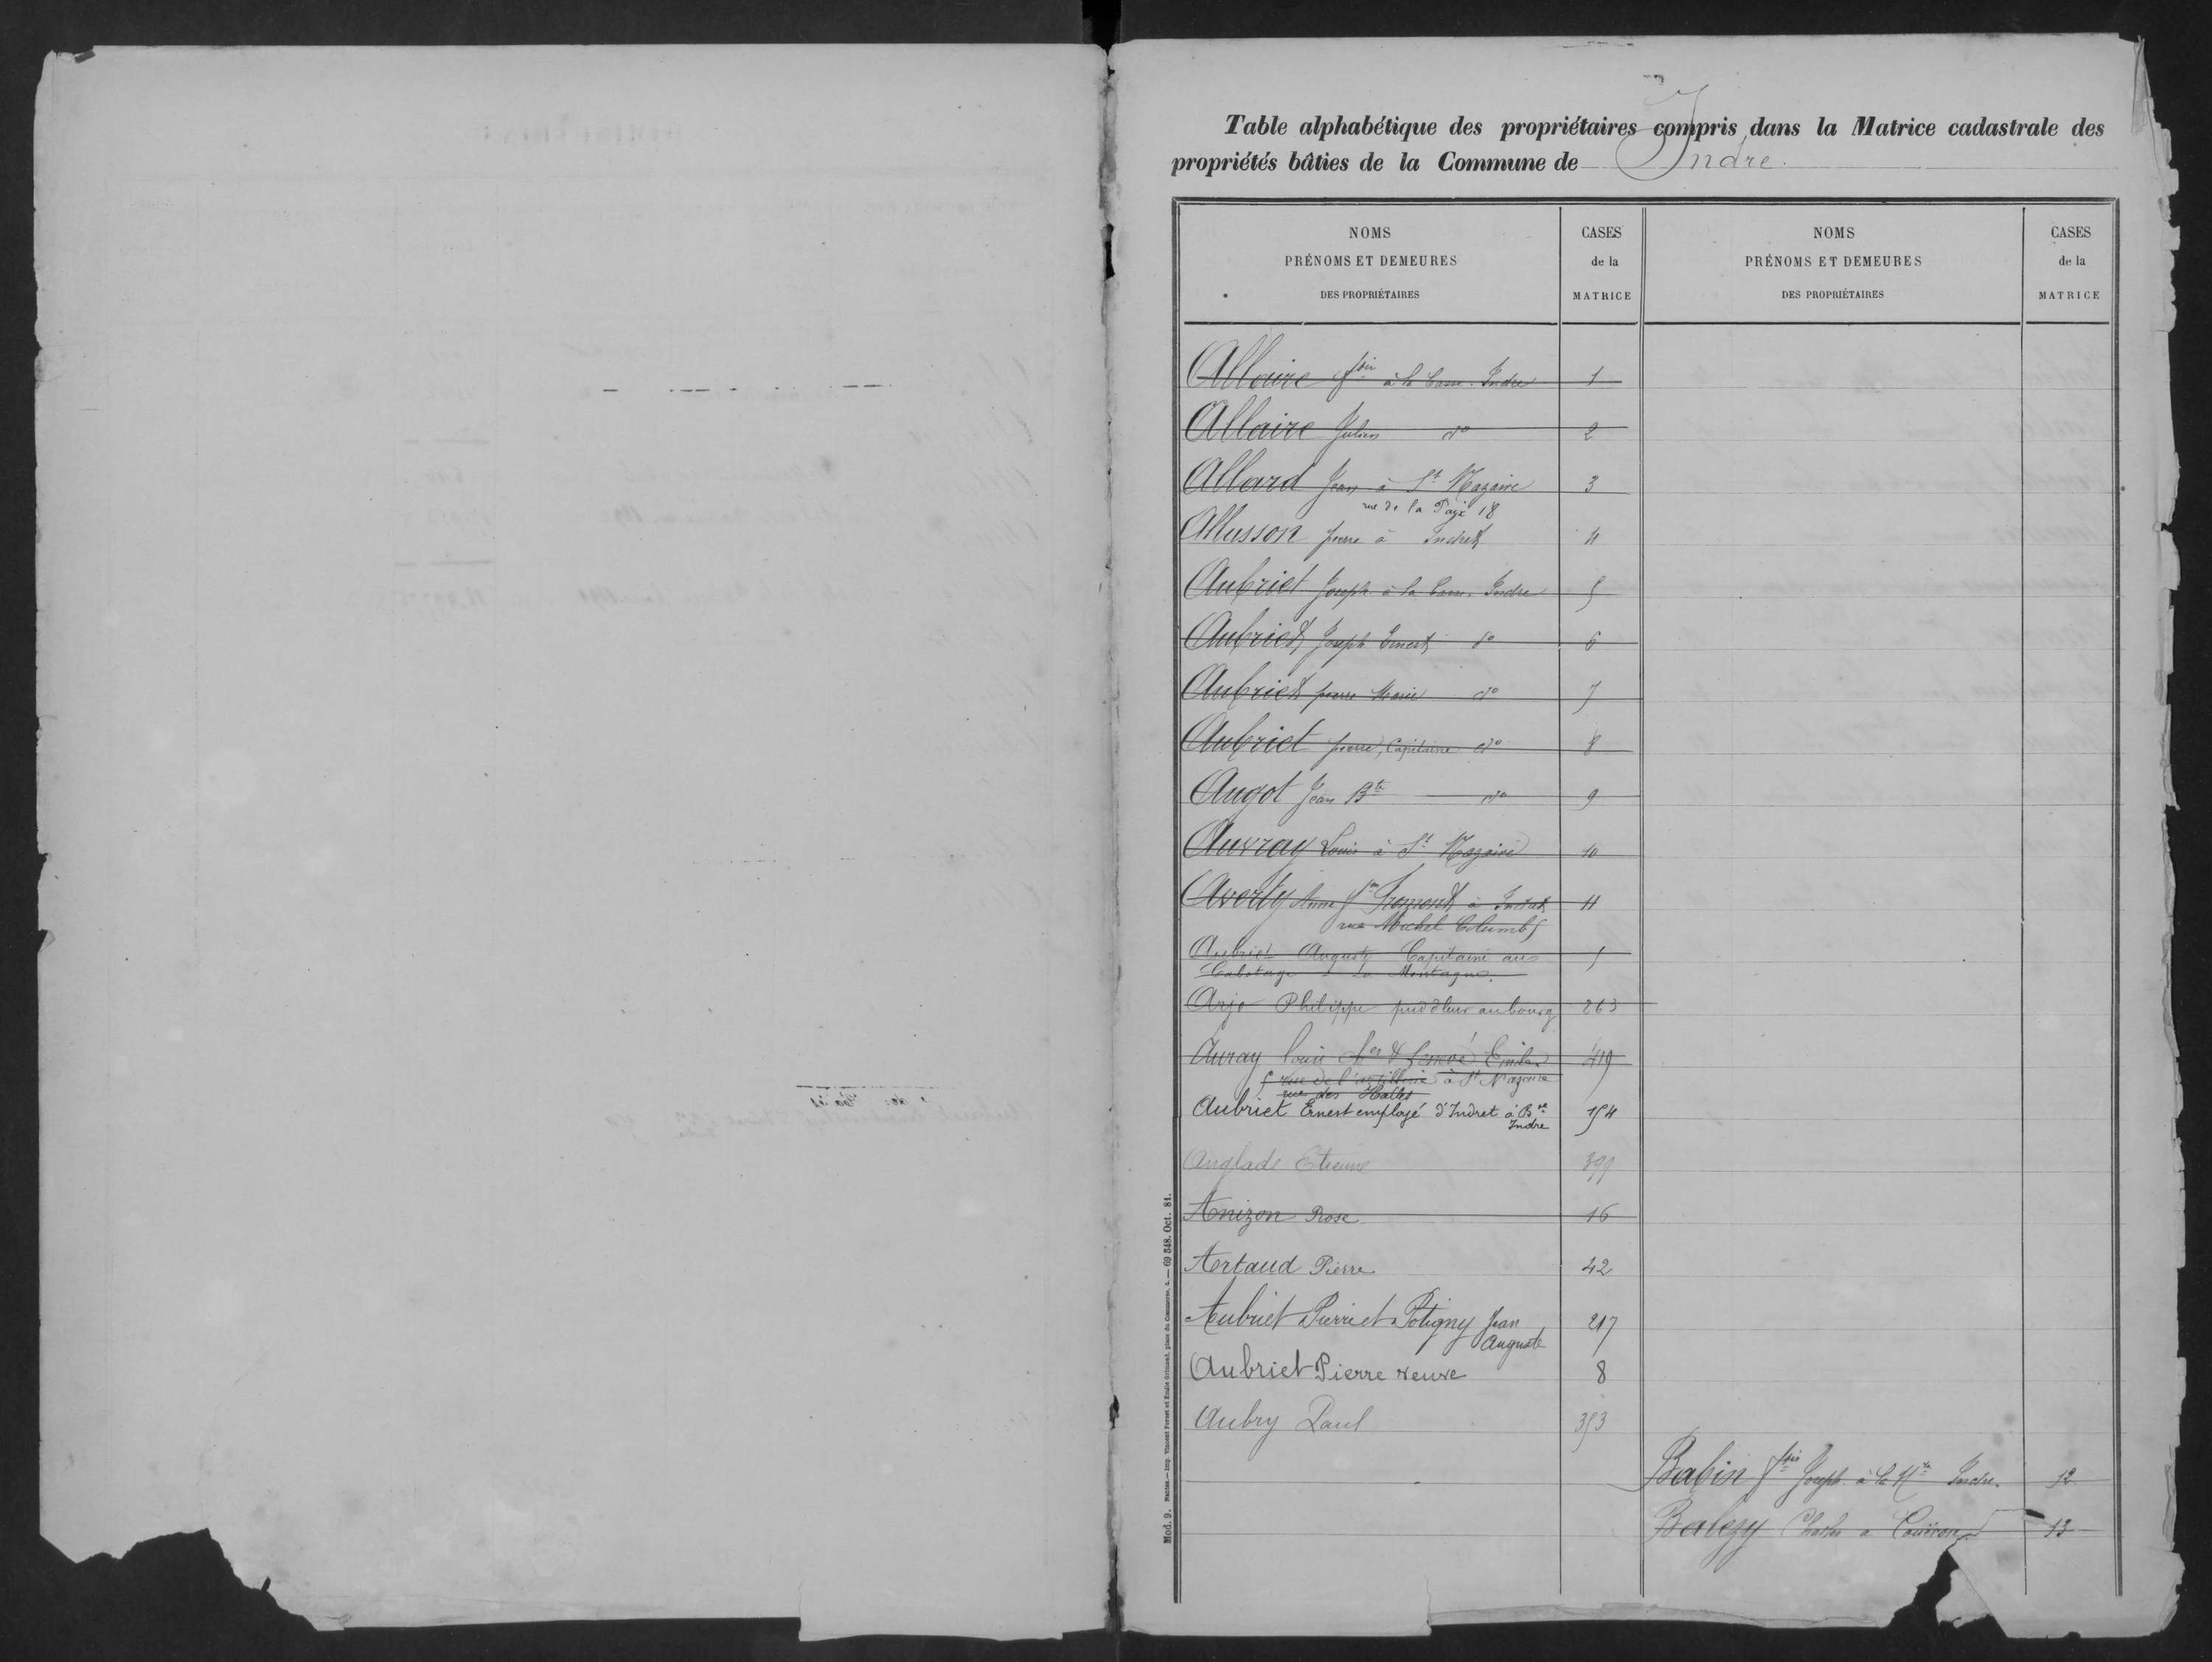 Table alphabétique des propriétaires compris dans la Matrice cadastrale des
propriétés bâties de la Commune de Indre.
NOMS
PRÉNOMS ET DEMEURES
DES PROPRIÉTAIRES
CASES
de la
MATRICE
NOMS
PRÉNOMS ET DEMEURES
DES PROPRIÉTAIRES
CASES
de la
MATRICE
Allaire fois à la Basse Indre 1
Allaire Julien do 2
Allard Jean à St Nazaire 3
rue de la Paix 18
Allusson pierre à Indret 4
Aubriet Joseph à la Basse Indre 5
Aubriet Joseph Ernest do 6
Aubriet pierre Marie do 7
Aubriet pierre, Capitaine do 8
Augot Jean Bte do 9
Auvray Louis à St Nazaire 10
Averty Anne fe Fromont à Indret 11
rue Michel Columb 5
Aubriet Auguste Capitaine au 5
Cabotage à La Montagne.
Arjo Philippe puddleur au bourg 263
Auray Louis & Émile 419
5 rue de l'artillerie à St Nazaire
rue des Halles
Aubriet Ernest employé d'Indret à Bse 154
Indre
Anglade Etienne 399
Anizon Rose 16
Artaud Pierre 42
Aubriet Pierre et Potigny Jean 217
Auguste
Aubriet Pierre veuve 8
Aubry Paul 353
Babin fois Joseph à la Hte Indre. 12
Balezy Charles a Couëron 13
Mod. 9. Nantes.— Imp. Vincent Forest et Emile Grimaud, place du Commerce, 4. — 69 548. Oct. 81.